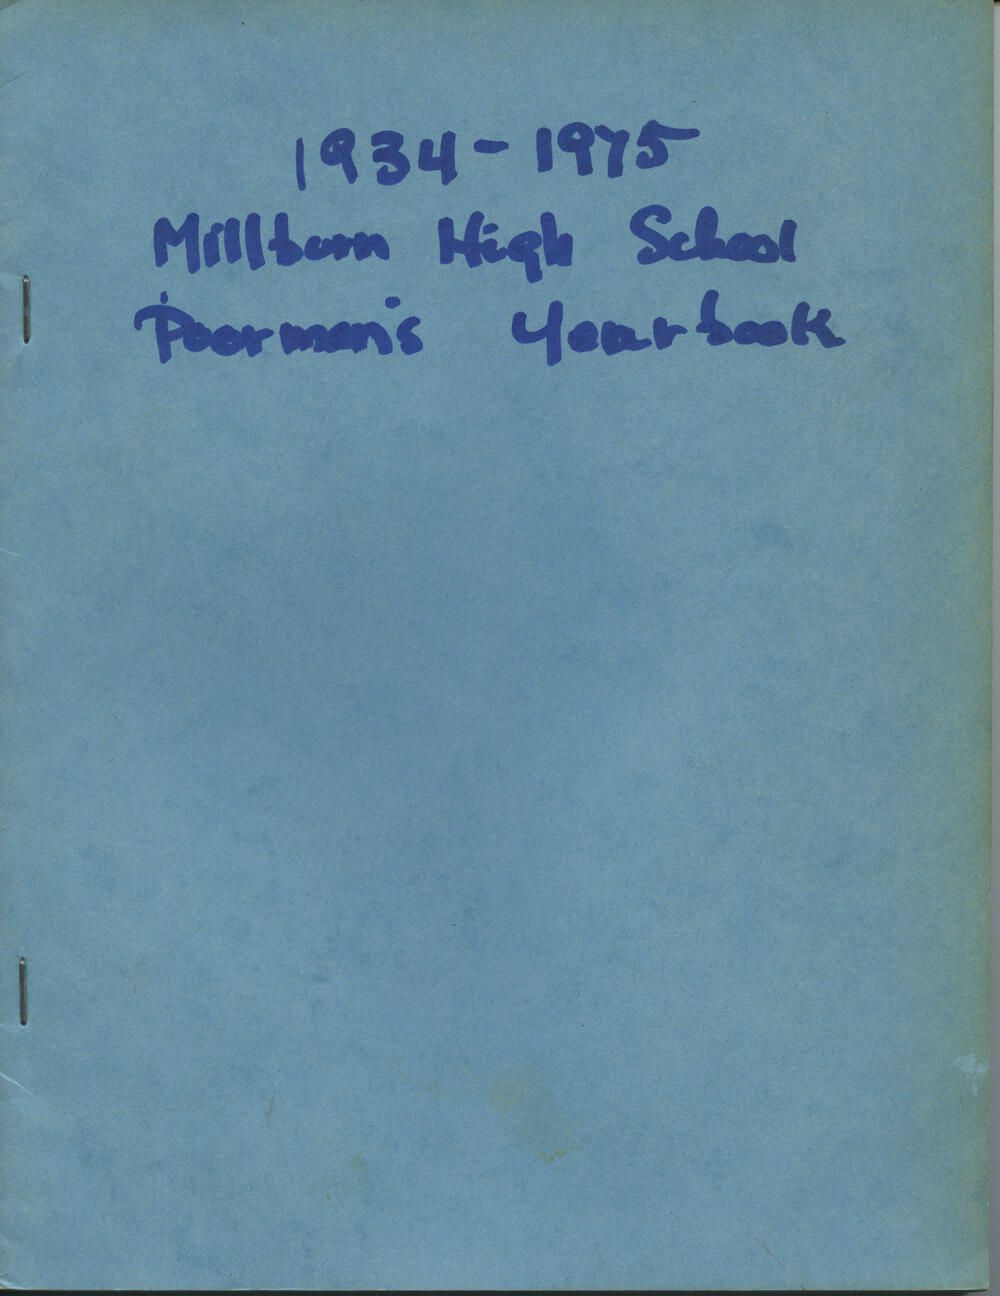 1934-1975
Millburn High School
Poorman's Yearbook